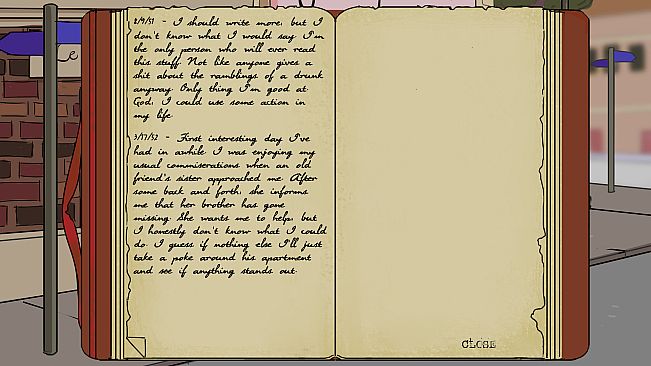 2/9/31 - I should write more, but I
don't know what I would say. I'm
the only person who will ever read
this stuff. Not like anyone gives a
shit about the ramblings of a drunk
anyway. Only thing I'm good at.
God, I could use some action in
my life.
3/17/32 - First interesting day I've
had in awhile. I was enjoying my
usual commiserations when an old
friend's sister approached me. After
some back and forth, she informs
me that her brother has gone
missing. She wants me to help, but
I honestly don't know what I could
do. I guess if nothing else I'll just
take a poke around his apartment
and see if anything stands out.
CLOSE